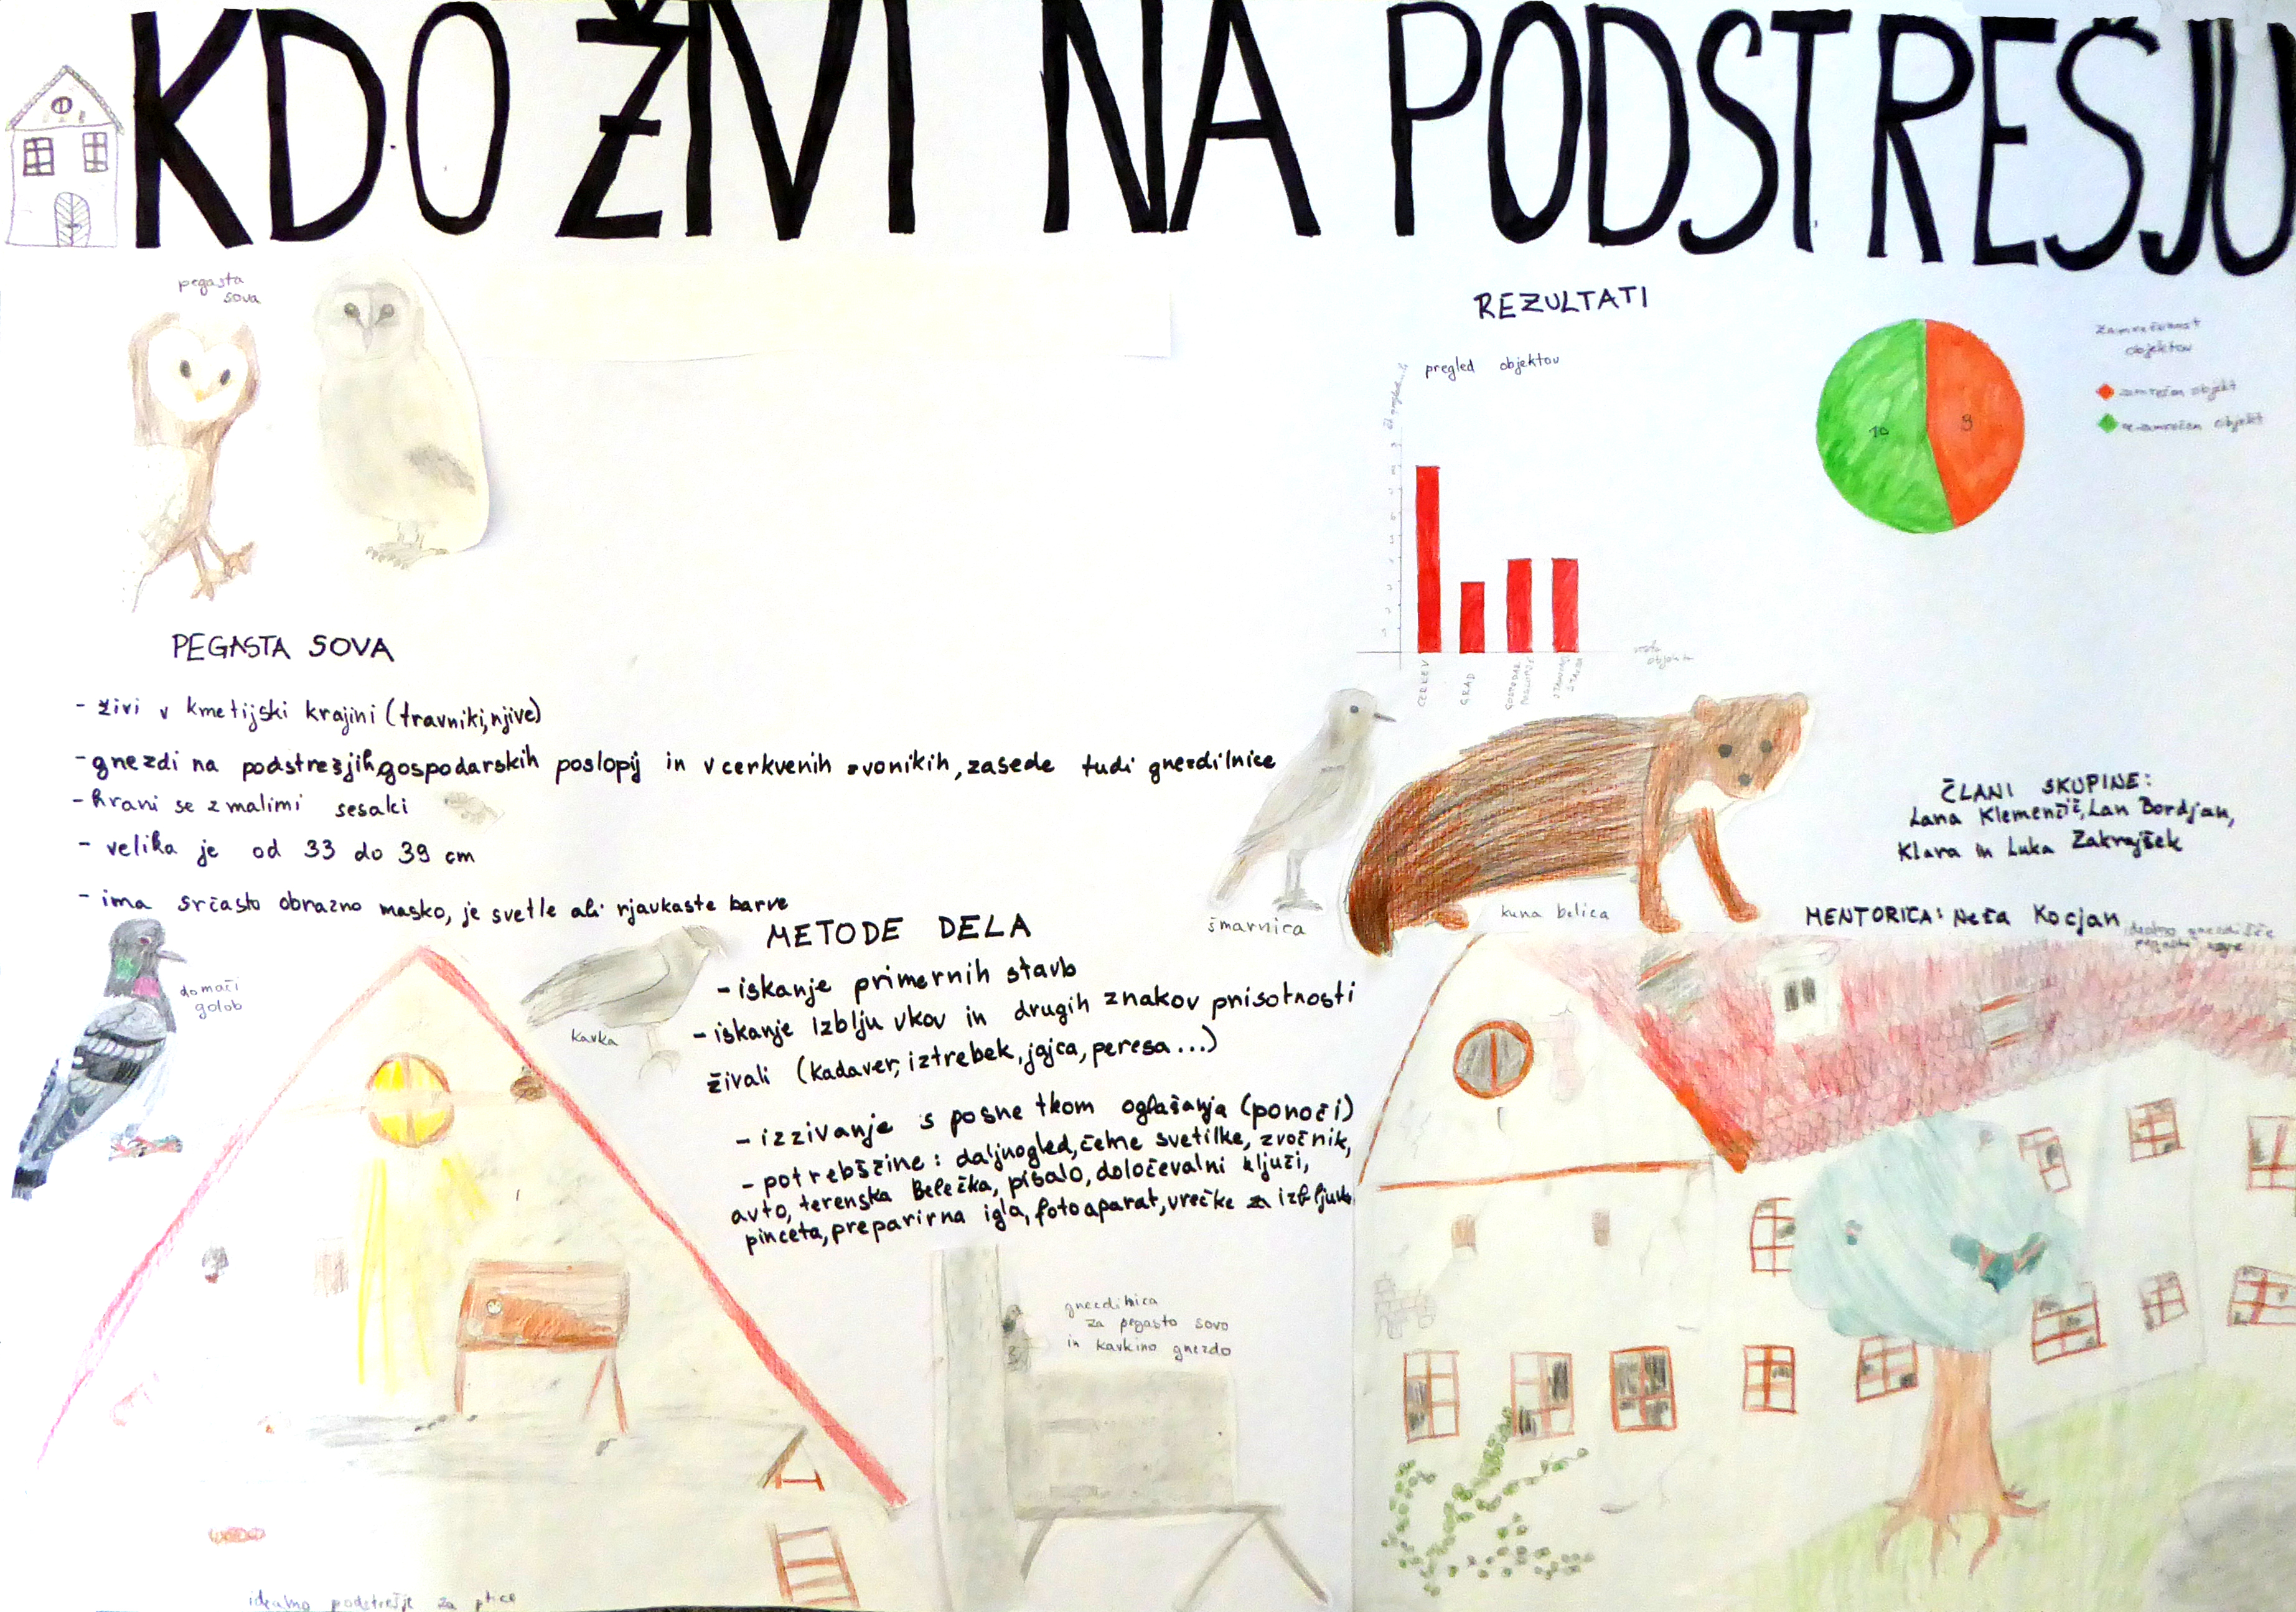 KDO ŽIVI NA PODSTREŠJU
pegasta
sova
PEGASTA SOVA
- živi v kmetijski krajini (travniki, njive)
- gnezdi na podstrešjih, gospodarskih poslopij in v cerkvenih zvonikih, zasede tudi gnezdilnice
- hrani se z malimi sesalci
- velika je od 33 do 39 cm
- ima srčasto obrazno masko, je svetle ali rjavkaste barve
REZULTATI
pregled objektov
CERKEV
GRAD
objektov
10
9
zamrežen objekt
objekt
šmarnica
kuna belica
ČLANI SKUPINE:
Lana Klemenčič, Lan Bordjan,
Klara in Luka Zakrajšek
MENTORICA: Neža Kocjan
domači
golob
kavka
METODE DELA
- iskanje primernih stavb
- iskanje izbljuvkov in drugih znakov prisotnosti
živali (kadaver, iztrebek, jajca, peresa...)
- izzivanje s posnetkom oglašanja (ponoči)
- potrebščine: daljnogled, čelne svetilke, zvočnik,
avto, terenska beležka, pisalo, določevalni ključi,
pinceta, preparirna igla, fotoaparat, vrečke za izbljuvke
gnezdilnica
za pegasto sovo
in kavkino gnezdo
idealno podstrešje za ptice